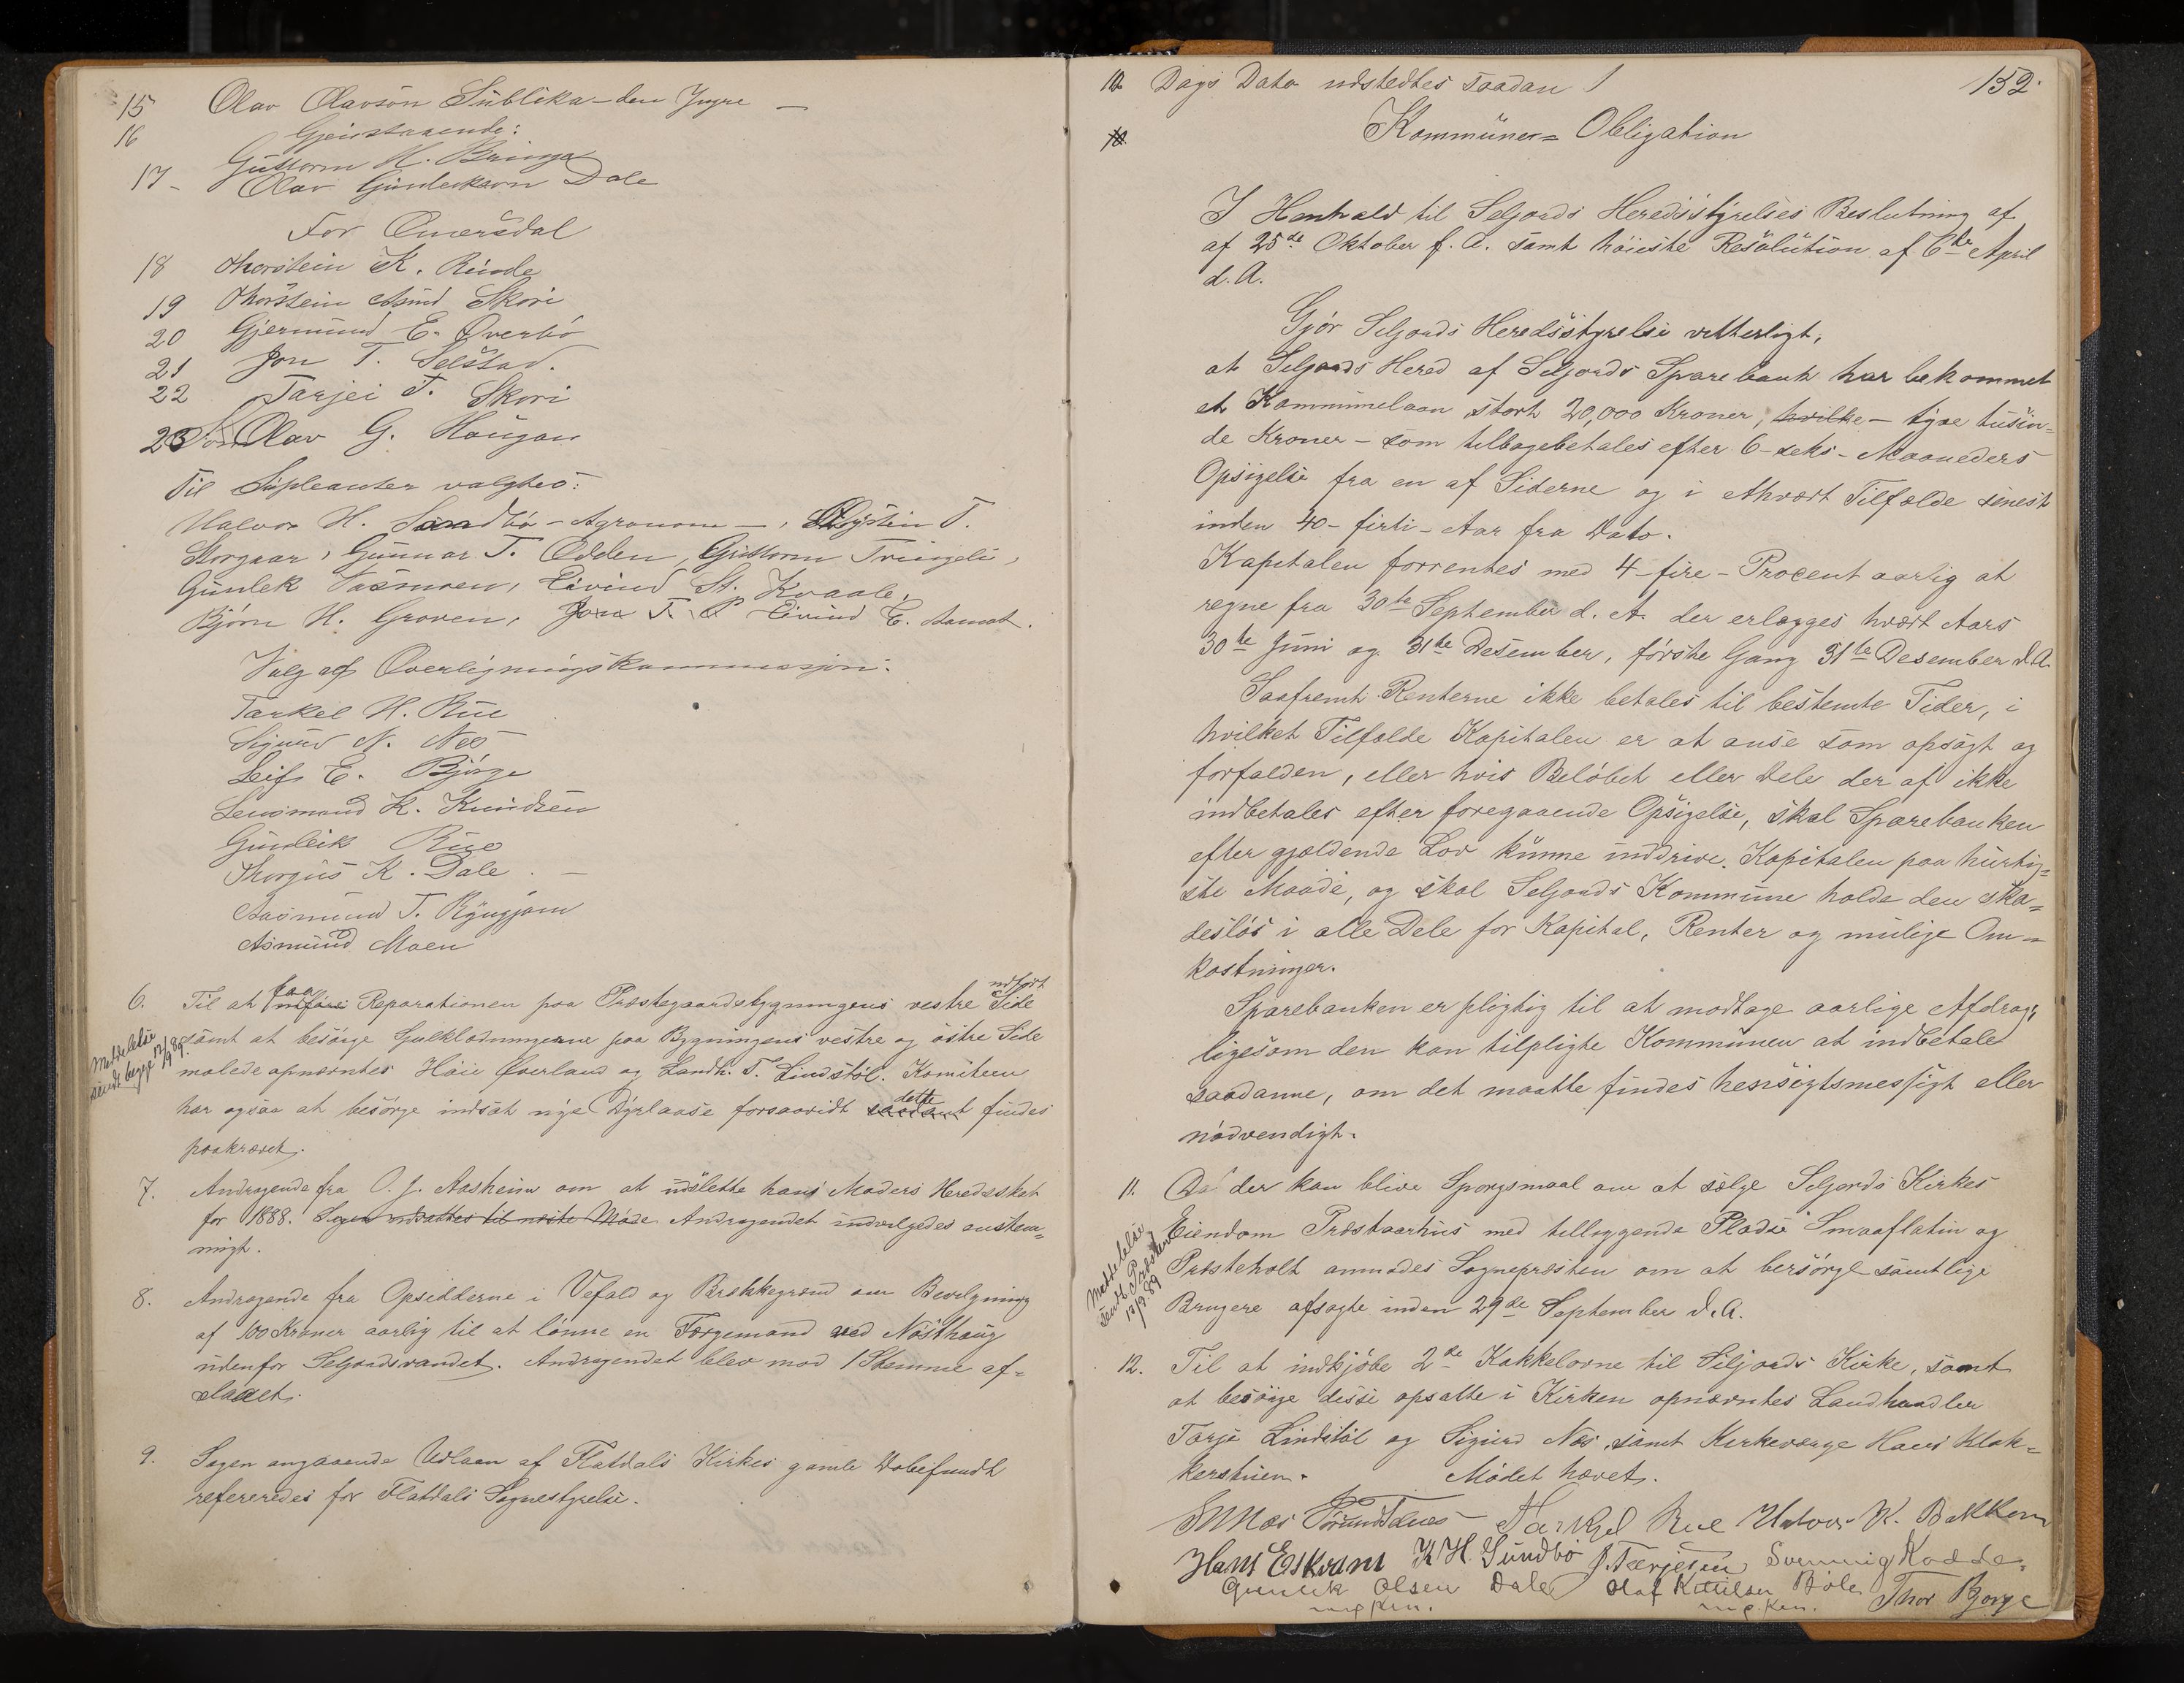 15 Olav Olavson Sublika – den Yngre –
16 Gjenstaaende:
Guttorm H. Bringa
17 - Olav Gunleiksen Dale
For Omersdal
18 Thorstein K. Runde
19 Thorstein Asmd Skori
20 Gjermund E. Overbö
21 Jon T. Selstad.
22 Tarjei T. Skori
23 Olav G. Haugan
Til Supleanter valgtes:
Halvor H. Sandbö – Agronom –, Öystein T.
Storgaar, Gunnar T. Odden, Guttorm Tveigeli,
Gunlek Vaasmoen, Eivind St. Kvaale,
Björn H. Groven, Jon T. P Eivind E. Aamot.
Valg af Overligningskommisjon:
Tarkel H. Rue
Sigurd N. Nes
Leif E. Bjørge
Lensmand K. Knudsen
Gunleik Rue
Thorgus K. Dale. –
Aasmund T. Ryngjom
Asmund Moen
6. Til at faa udføre Reparationen paa Præstegaardsbygningens vestre Side udført
samt at besörge Gulklædningerne paa Bygningens vestre og östre Side
malede opnævntes Höie Överland og Landh. T. Lindstöl. Komiteen
har ogsaa at besörge indsat nye Dyrlaase forsaavidt saadant dette findes
paakrævet.
Meddelelse
sendt begge 12/9 89.
7. Andragende fra O. J. Aasheim om at udslette hans Moders Heredsskat
for 1888. Sagen udsattes til næste Möde. Andragendet indvilgedes enstem=
migt.
8. Andragende fra Opsidderne i Vefald og Brækkegrænd om Bevilgning
af 100 Kroner aarlig til at lönne en Færgemand ved Nösthaug
udenfor Seljordsvandet. Andragendet blev mod 1 Stemme af=
slaaet.
9. Sagen angaaende Udlaan af Flatdals Kirkes gamle Döbefundt
refereredes for Flatdals Sognestyrelse.
152.
10. Dags Dato udstedtes saadan
10. Kommune= Obligation
I Henhald til Seljords Heredsstyrelses Beslutning af
af 25de Oktober f. A. samt höieste Resolution af 6te April
d. A.
Gjör Seljords Heredsstyrelse vitterligt,
at Seljords Hered af Seljords Sparebank har bekommet
et Kommunelaan stort 20,000 Kroner, hvilke – tyve tusin=
de Kroner – som tilbagebetales efter 6 – seks – Maaneders
Opsigelse fra en af Siderne og i ethvært Tilfælde senest
inden 40 – firti – Aar fra Dato.
Kapitalen forrentes med 4 – fire – Procent aarlig at
regne fra 30te September d. A. der erlægges hvært Aars
30te Juni og 31te Desember, förste Gang 31te Desember d. A.
Saafremt Renterne ikke betales til bestemte Tider, i
hvilket Tilfælde Kapitalen er at anse som opsagt og
forfalden, eller hvis Belöbet eller Dele der af ikke
indbetales efter foregaaende Opsigelse, skal Sparebanken
efter gjældende Lov kunne inddrive Kapitalen paa hurtig=
ste Maade, og skal Seljords Kommune holde den ska=
deslös i alle Dele for Kapital, Renter og mulige Om=
kostninger.
Sparebanken er pligtig til at modtage aarlige Afdrag,
ligesom den kan tilpligte Kommunen at indbetale
saadanne, om det maatte findes hensigtsmessigt eller
nödvendigt.
11. Da der kan blive Sporgsmaal om at sælge Seljords Kirkes
Eiendom Præstaarhus med tilliggende Pladse Smaaflatin og
Præsteholt anmodes Sognepræsten om at bersörge samtlige
Brugere opsagte inden 29de September d. A.
Meddelelse
sendt Præsten
12/9. 89
12. Til at indkjöbe 2de Kakkelovne til Siljords Kirke, samt
at besörge disse opsatte i Kirken opnævntes Landhandler
Tarje Lindstöl og Sigurd Nes, samt Kirkeværge Hans Klok=
kerstuen. Mödet hævet.
Tarkjel Rue Halvor K. Bakken
Hans E Skram K H. Sundbö J. Tarjesen Svennung Kodde.
Gunlik Olsen Dale Olaf Kittilsen Böle Thor Bjorge
m. p. Pen. m. p. Pen.